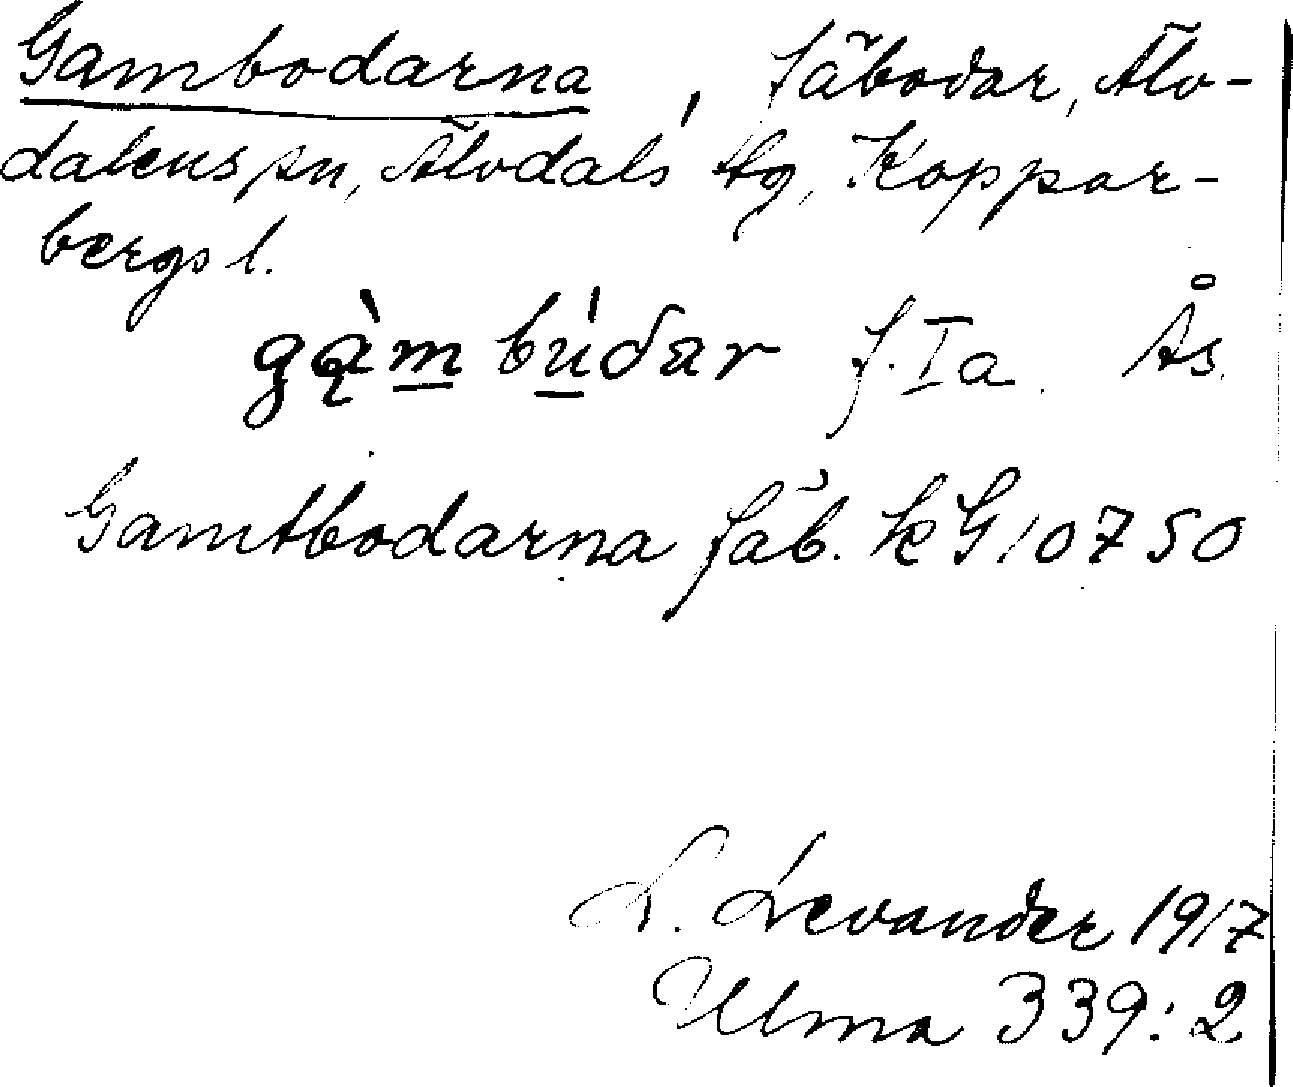 Gambodarna, fäbodar, Älv-
dalens sn, Älvdals tg, Koppar-
bergs l.
gą̀m bu̱̍dar f. Ia. Ås.
Gamtbodarna fäb. kG 10750
L. Levander 1917
Ulma 339:2